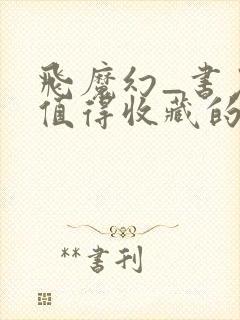 飛魔幻_書
值得收藏的
**書刊